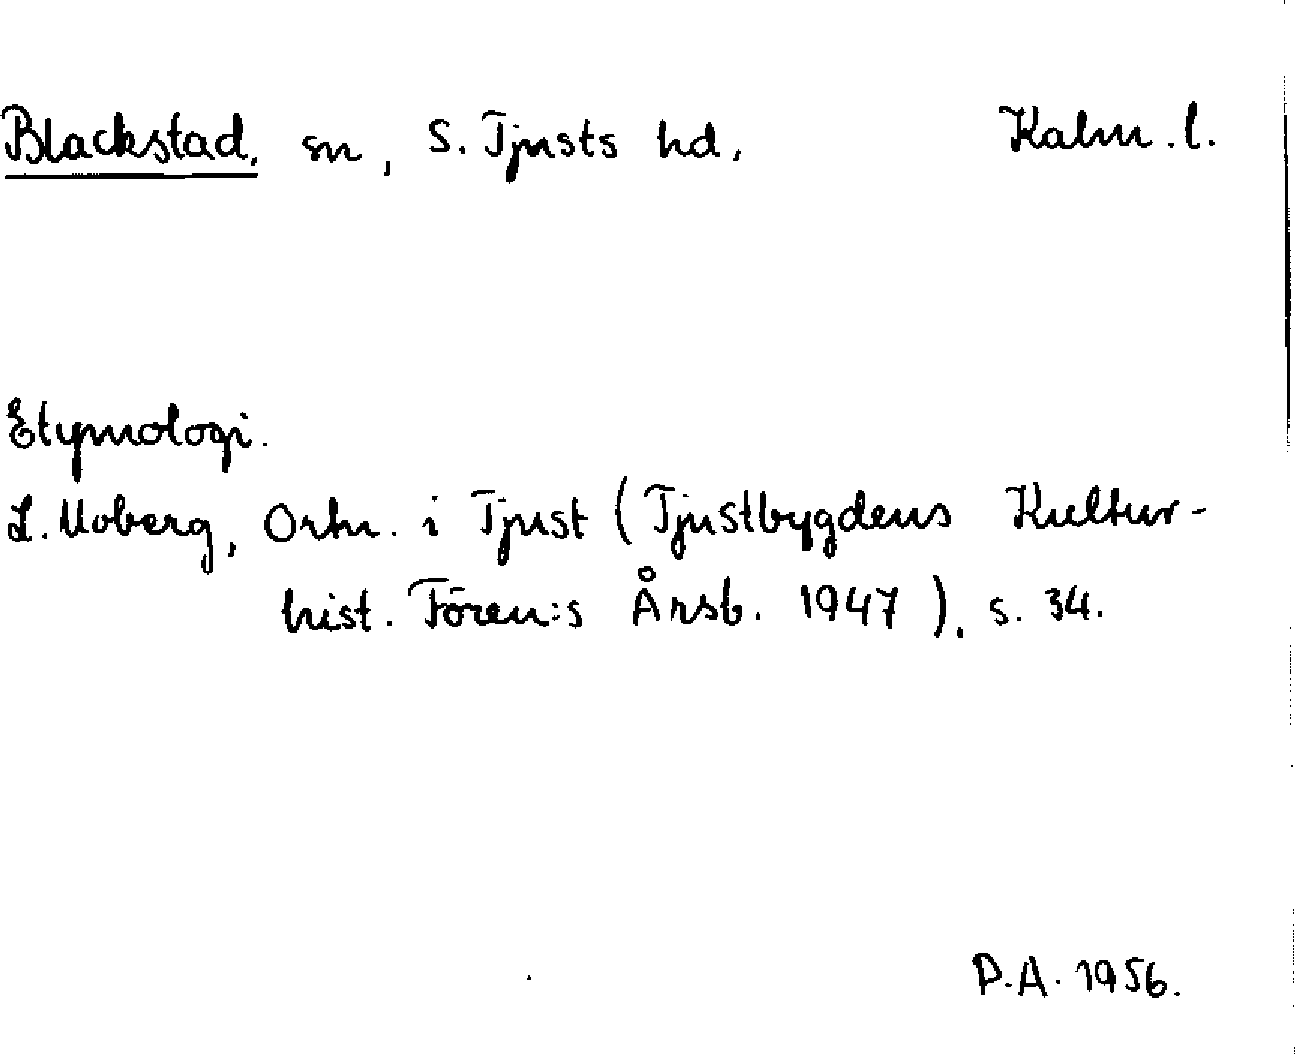 Blackstad, sn, S. Tjusts hd, Kalm. l.
Etymologi.
L. Moberg, Ortn. i Tjust (Tjustbygdens Kultur-
hist. Fören:s Årsb. 1947), s. 34.
P.A. 1956.